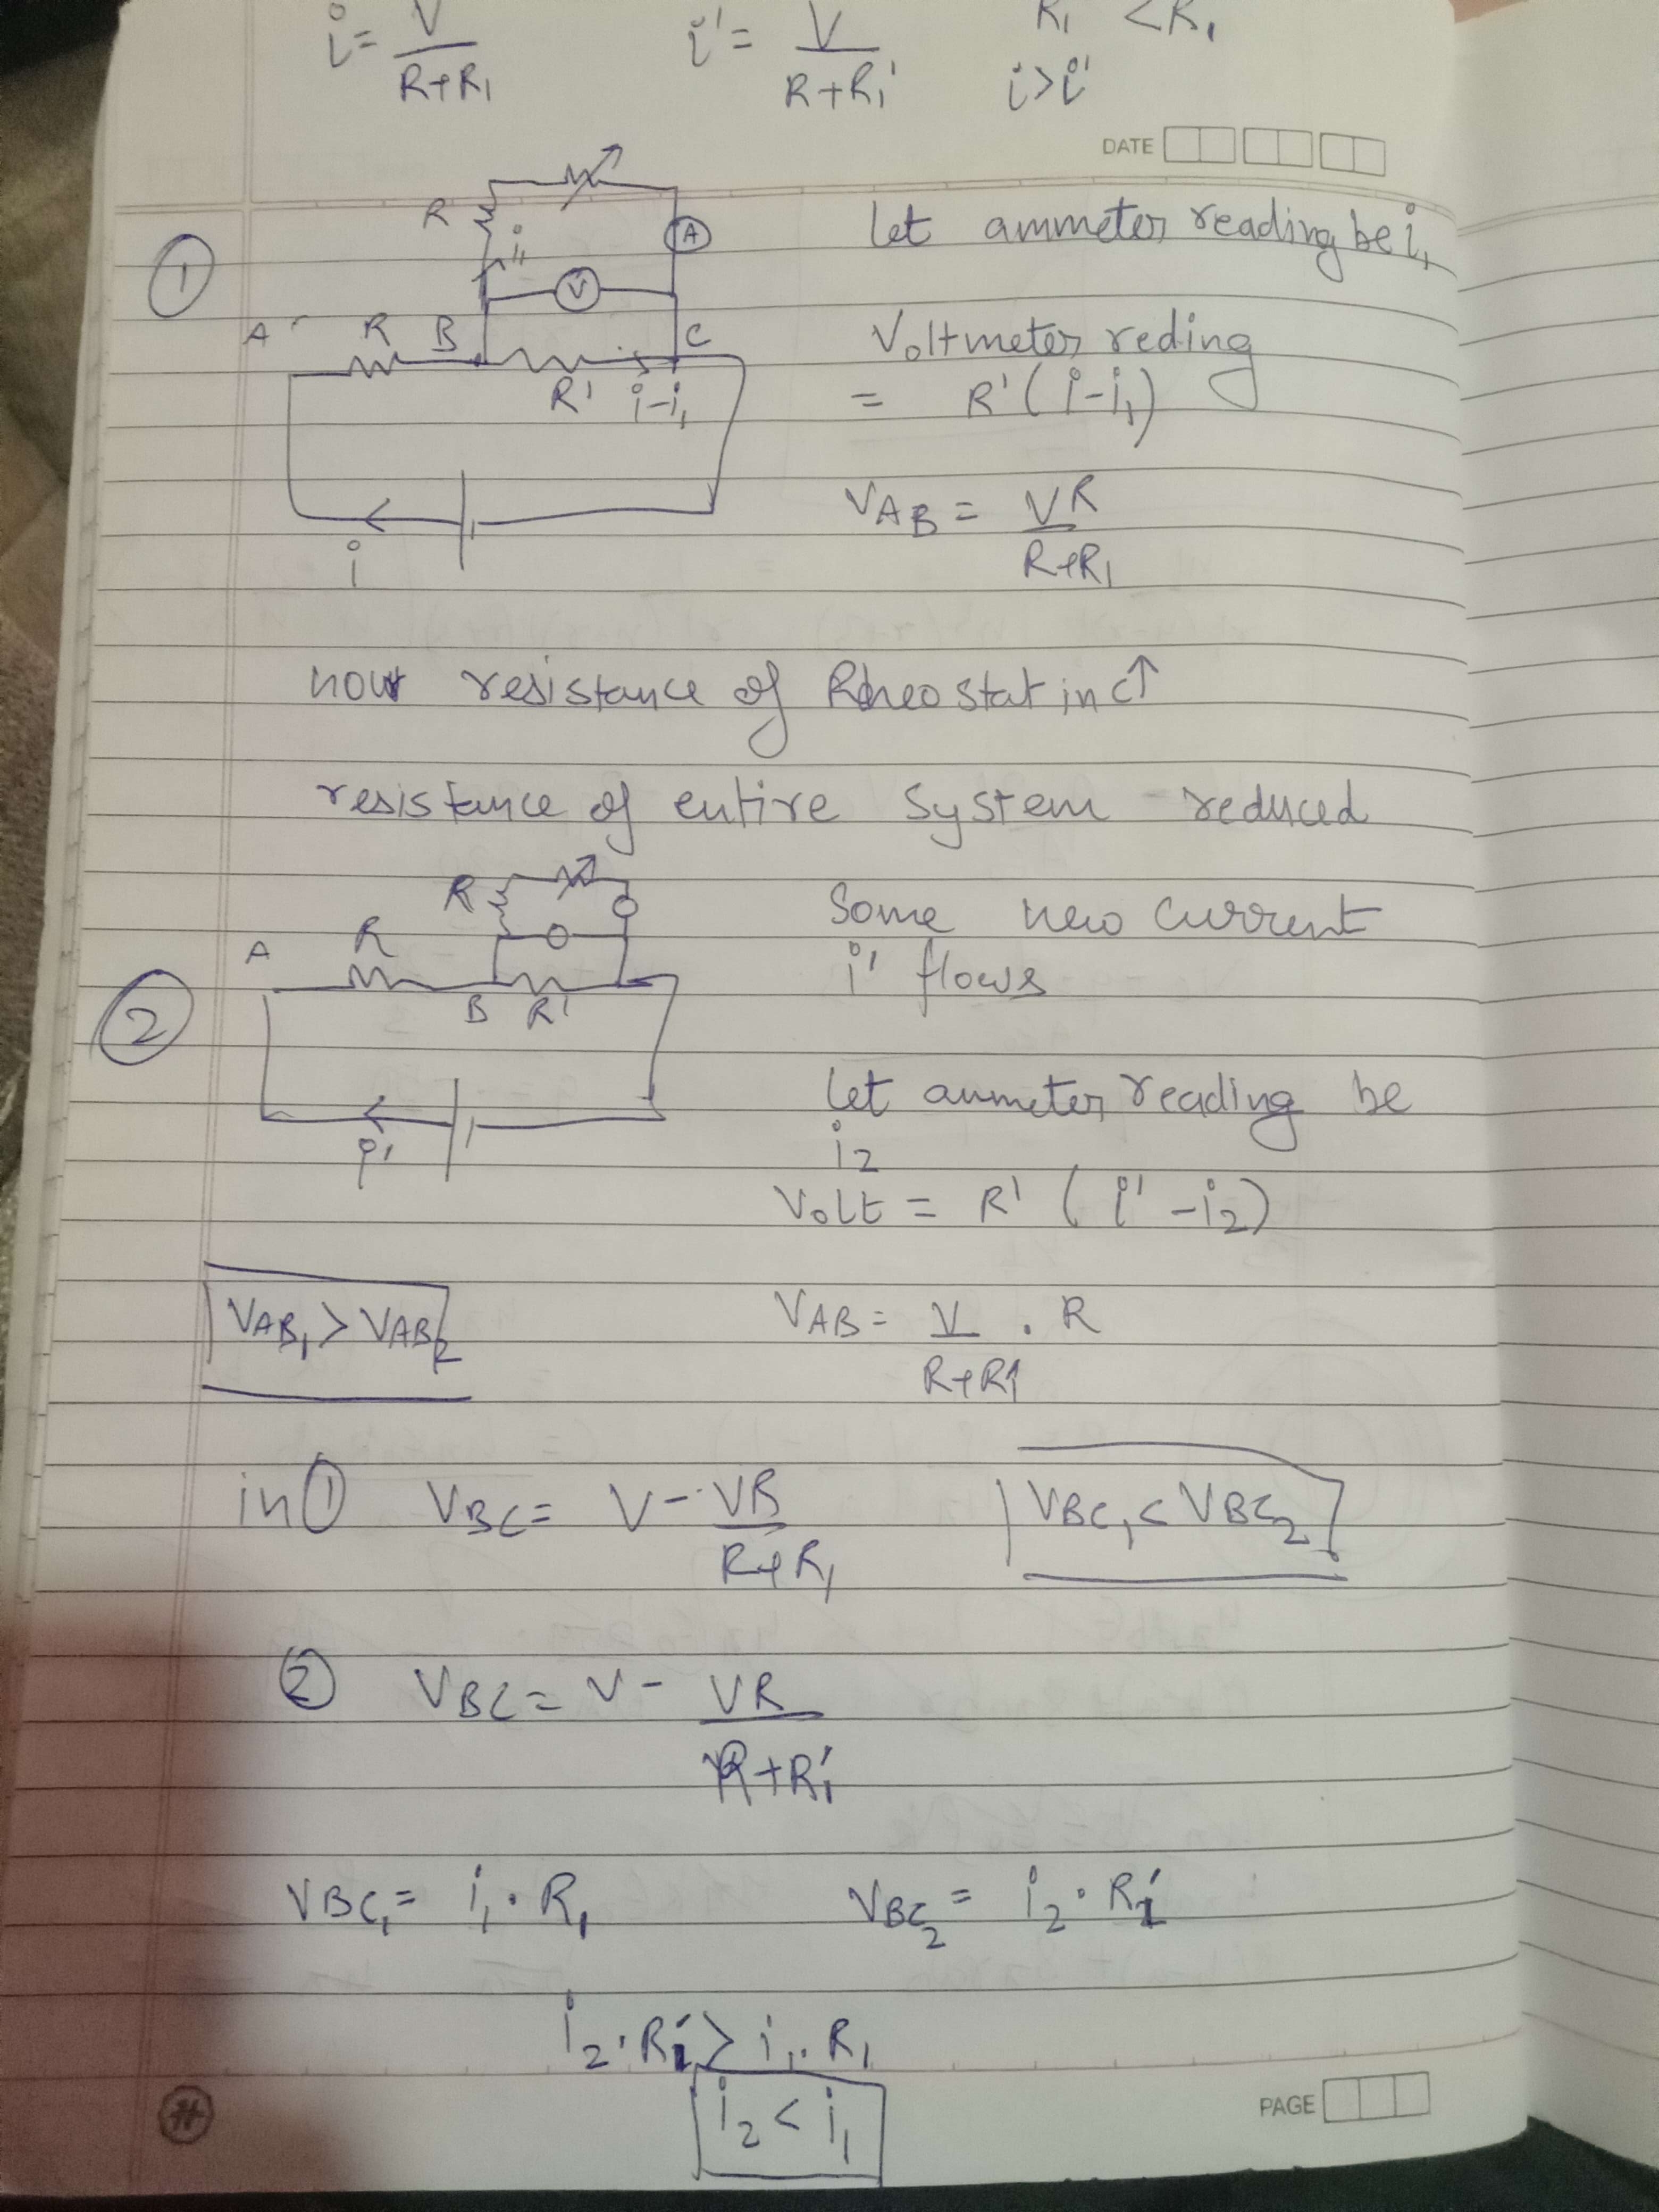 i = V / R+R₁    i' = V / R+R₁'    R₁' < R₁
i > i'
DATE
①
R
A
i₁
V
A R B C
R' i-i₁
i
let ammeter reading be i₁
Voltmeter reding
= R' (i-i₁)
V_AB = VR / R+R₁
now resistance of Rheostat inc↑
resistance of entire system reduced
②
R
A R
B R'
i'
Some new current
i' flows
let ammeter reading be
i₂
Volt = R' (i' - i₂)
V_AB₁ > V_AB₂
V_AB = V / R+R₁' . R
in ① V_BC = V - VR / R+R₁    V_BC₁ < V_BC₂
② V_BC = V - VR / R+R₁'
V_BC₁ = i₁ . R₁    V_BC₂ = i₂ . R₁'
i₂ . R₁' > i₁ . R₁
i₂ < i₁
PAGE